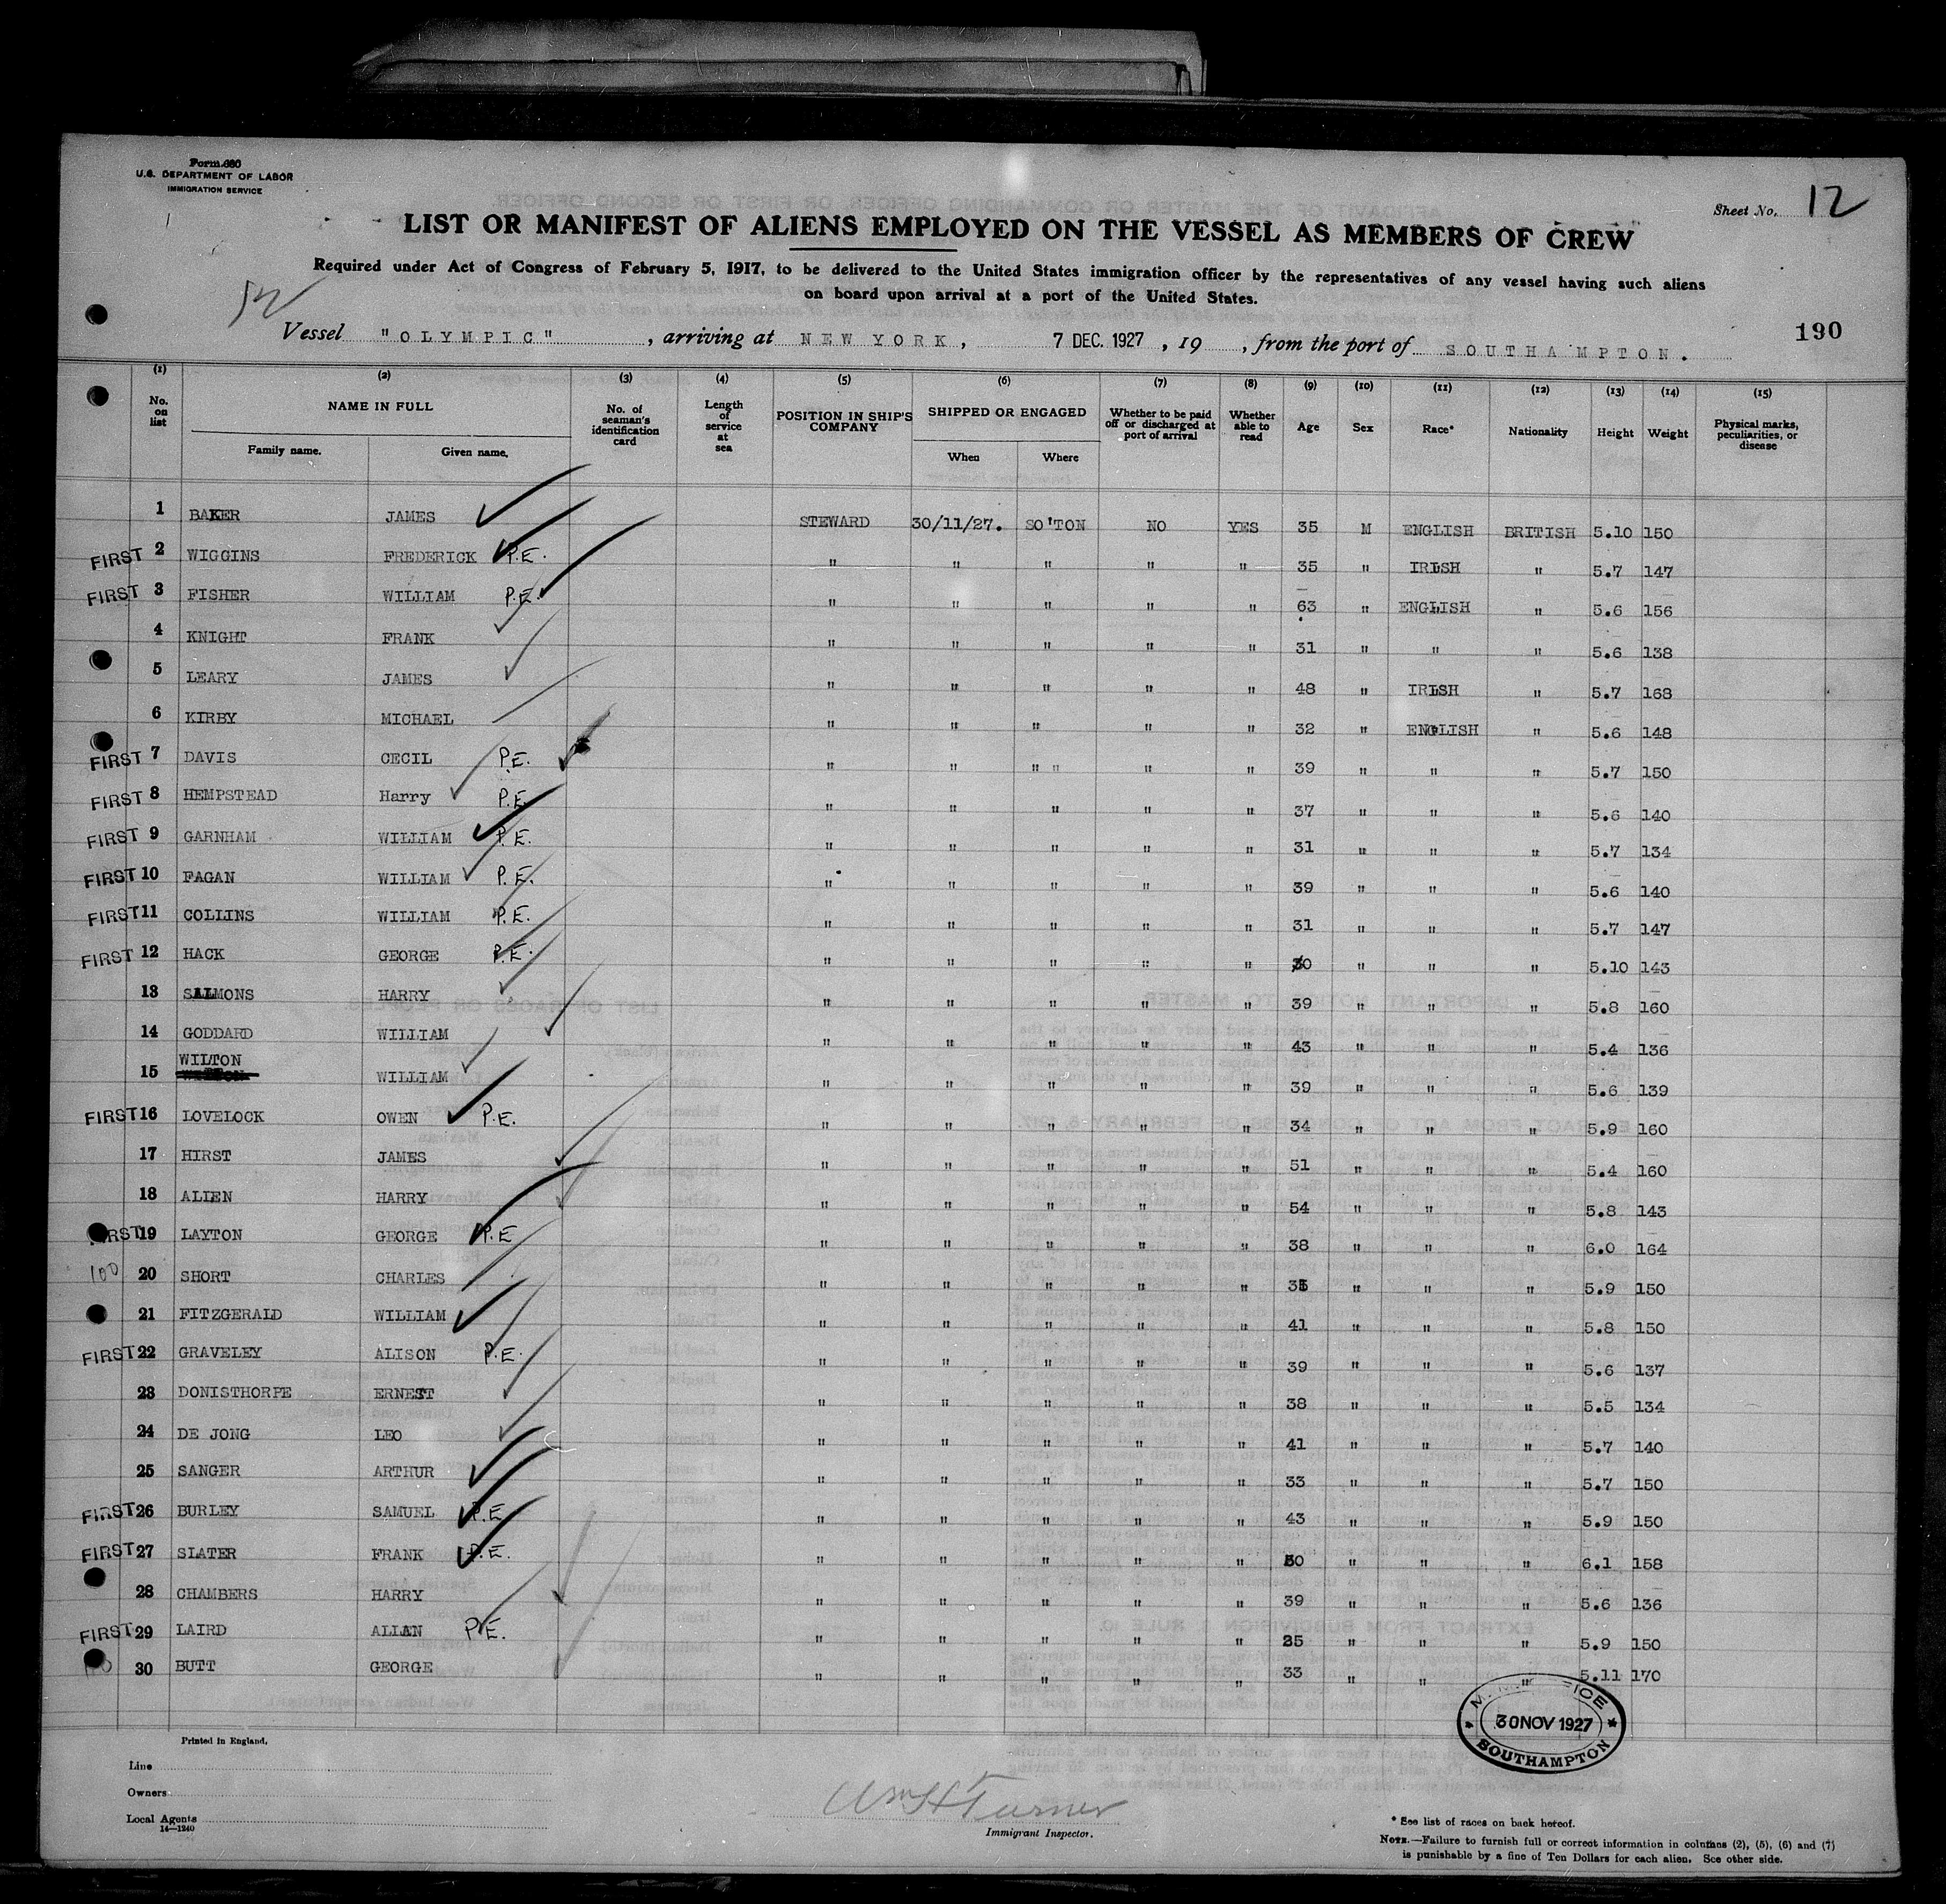 Form 680
U.S. DEPARTMENT OF LABOR
IMMIGRATION SERVICE
Sheet No. 12
LIST OR MANIFEST OF ALIENS EMPLOYED ON THE VESSEL AS MEMBERS OF CREW
Required under Act of Congress of February 5, 1917, to be delivered to the United States immigration officer by the representatives of any vessel having such aliens
on board upon arrival at a port of the United States.
Vessel "OLYMPIC", arriving at NEW YORK, 7 DEC. 1927, 19 , from the port of SOUTHAMPTON.
190
(1) (2) (3) (4) (5) (6) (7) (8) (9) (10) (11) (12) (13) (14) (15)
No. on list NAME IN FULL Family name. Given name. No. of seaman's identification card Length of service at sea POSITION IN SHIP'S COMPANY SHIPPED OR ENGAGED When Where Whether to be paid off or discharged at port of arrival Whether able to read Age Sex Race* Nationality Height Weight Physical marks, peculiarities, or disease
1 BAKER JAMES STEWARD 30/11/27. SO'TON NO YES 35 M ENGLISH BRITISH 5.10 150
FIRST 2 WIGGINS FREDERICK P.E. " " " " " 35 " IRISH " 5.7 147
FIRST 3 FISHER WILLIAM P.E. " " " " " 63 " ENGLISH " 5.6 156
4 KNIGHT FRANK " " " " " 31 " " " 5.6 138
5 LEARY JAMES " " " " " 48 " IRISH " 5.7 168
6 KIRBY MICHAEL " " " " " 32 " ENGLISH " 5.6 148
FIRST 7 DAVIS CECIL P.E. " " " " " " 39 " " " 5.7 150
FIRST 8 HEMPSTEAD Harry P.E. " " " " " 37 " " " 5.6 140
FIRST 9 GARNHAM WILLIAM P.E. " " " " " 31 " " " 5.7 134
FIRST 10 FAGAN WILLIAM P.E. " " " " " 39 " " " 5.6 140
FIRST 11 COLLINS WILLIAM P.E. " " " " " 31 " " " 5.7 147
FIRST 12 HACK GEORGE P.E. " " " " " 30 " " " 5.10 143
13 SALMONS HARRY " " " " " 39 " " " 5.8 160
14 GODDARD WILLIAM " " " " " 43 " " " 5.4 136
15 WILTON WILLIAM " " " " " 39 " " " 5.6 139
FIRST 16 LOVELOCK OWEN P.E. " " " " " 34 " " " 5.9 160
17 HIRST JAMES " " " " " 51 " " " 5.4 160
18 ALLEN HARRY " " " " " 54 " " " 5.8 143
FIRST 19 LAYTON GEORGE P.E " " " " " 38 " " " 6.0 164
100 20 SHORT CHARLES " " " " " 35 " " " 5.9 150
21 FITZGERALD WILLIAM " " " " " 41 " " " 5.8 150
FIRST 22 GRAVELEY ALISON P.E. " " " " " 39 " " " 5.6 137
23 DONISTHORPE ERNEST " " " " " 38 " " " 5.5 134
24 DE JONG LEO " " " " " 41 " " " 5.7 140
25 SANGER ARTHUR " " " " " 33 " " " 5.7 150
FIRST 26 BURLEY SAMUEL P.E " " " " " 43 " " " 5.9 150
FIRST 27 SLATER FRANK P.E. " " " " " 30 " " " 6.1 158
28 CHAMBERS HARRY " " " " " 39 " " " 5.6 136
FIRST 29 LAIRD ALLAN P.E. " " " " " 25 " " " 5.9 150
30 BUTT GEORGE " " " " " 33 " " " 5.11 170
30 NOV 1927
SOUTHAMPTON
Printed in England.
Line
Owners
Local Agents
14—1240
Wm H Turner
Immigrant Inspector.
* See list of races on back hereof.
NOTE.—Failure to furnish full or correct information in columns (2), (5), (6) and (7)
is punishable by a fine of Ten Dollars for each alien. See other side.